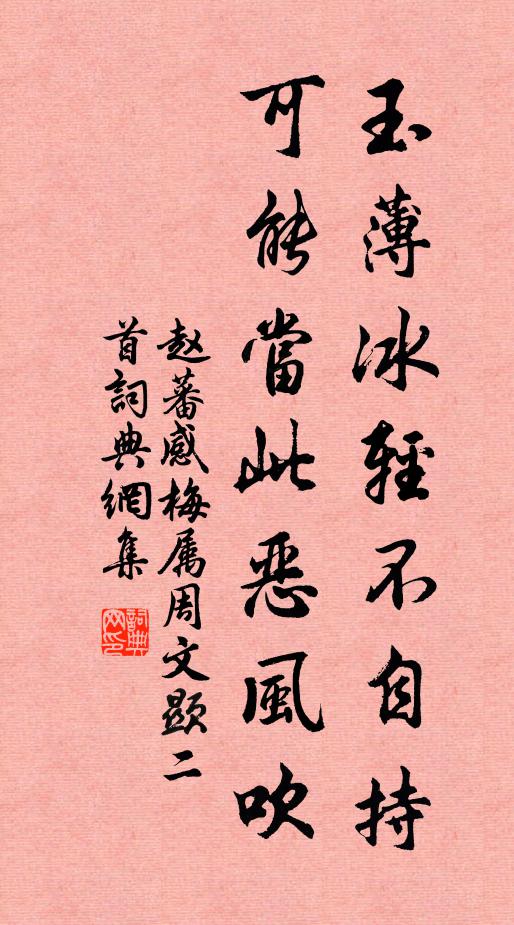 玉薄冰輕不自持
可能當此惡風吹
赵蕃感梅属周文顯二
首詞典網集
詞典
網印